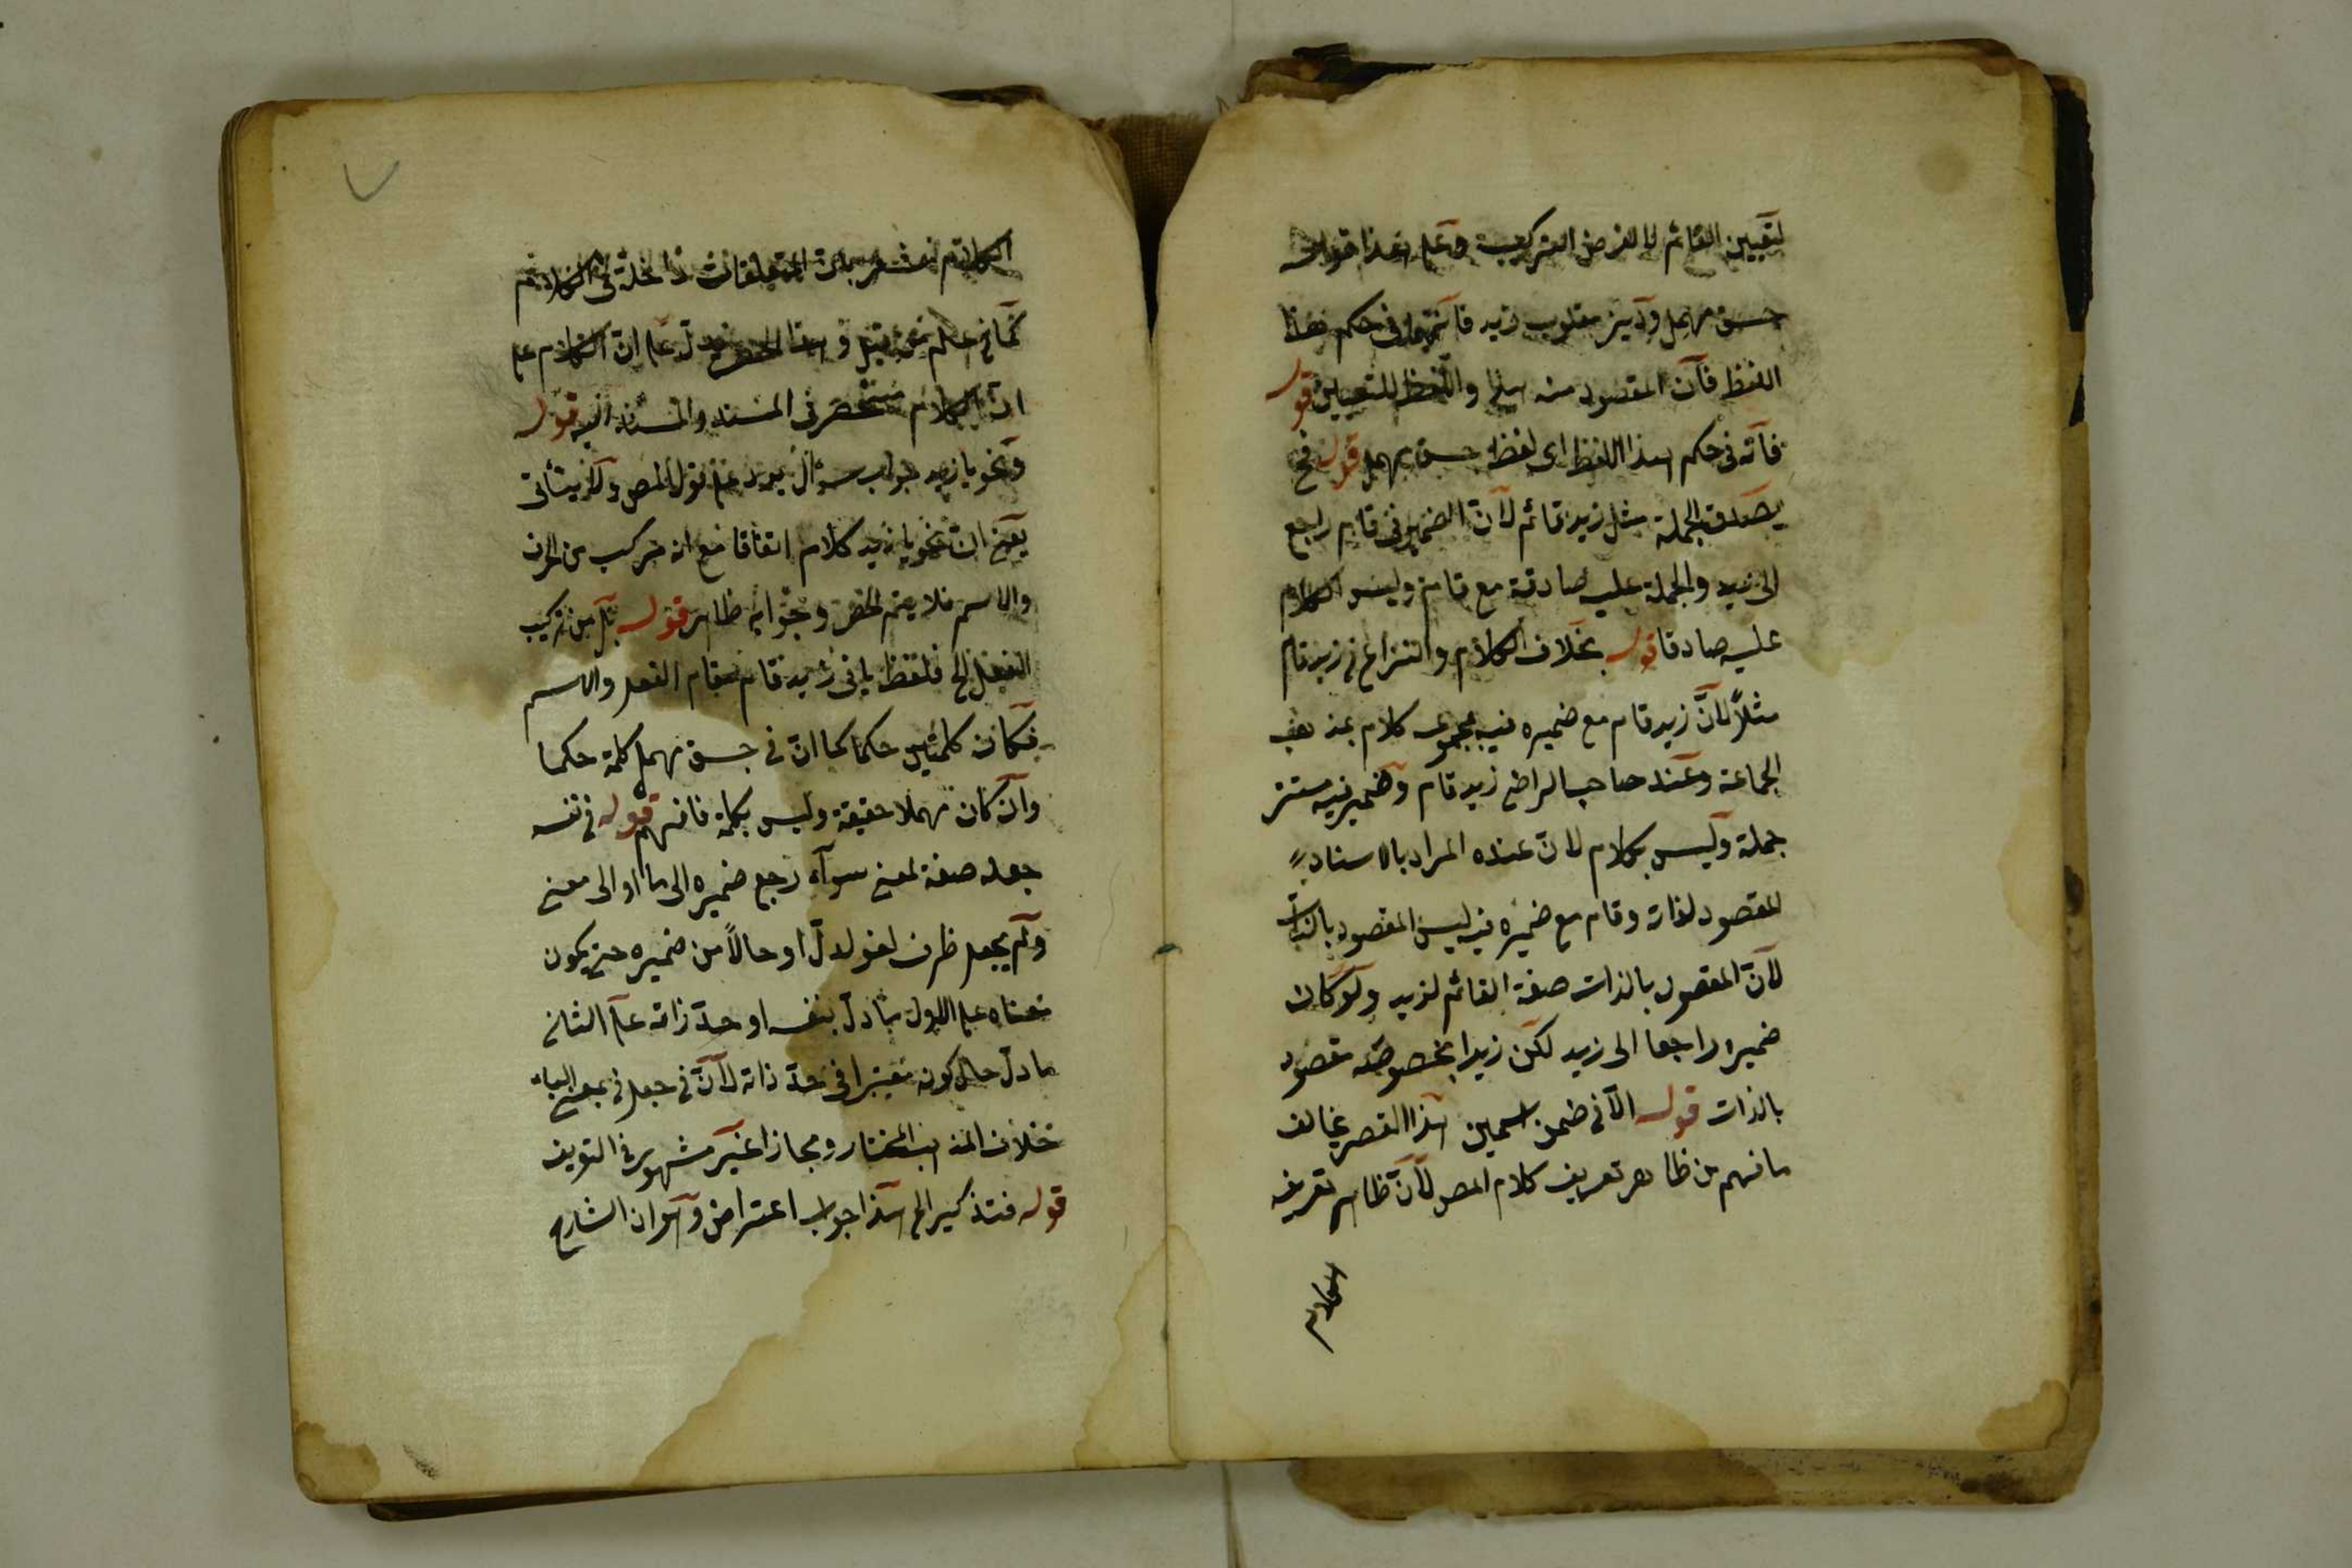 لتعيين القائم لا لغرض التركيب وعلى هذا قولك
جسق مهمل وديز مقلوب زيد فانهما في حكم هذا
اللفظ فان المقصود منه واللفظ للتعيين قوله
فانه في حكم هذا اللفظ اى لفظ جسق مهمل قوله فح
يصدق الجملة مثل زيد قائم لان الضمير في قام راجع
الى زيد والجملة عليه صادقة مع قام وليس الكلام
عليه صادقا قوله بخلاف الكلام والنزاع في زيد قام
مثلاً لانّ زيد قام مع ضميره فيه مجموع كلام بمذهب
الجماعة وعند صاحب الراضى زيد قام وضمير فيه مستتر
جملة وليس بكلام لان عنده المراد بالاسناد
المقصود لذاته وقام مع ضميره فيه ليس المقصود بالذات
لانّ المقصود بالذات صفة القائم لزيد ولو كان
ضميره راجعا الى زيد لكن زيدا بخصوصه مقصود
بالذات قوله الا في ضمن اسمين هذا القصر يخالف
ما فهم من ظاهر تعريف كلام المص لانّ ظاهر تعريفه
الكلام
الكلام المتعلقات داخلة في الكلام
كما في علم وهذا الحصر يدل على ان الكلام على
ان الكلام منحصر في المسند والمسند اليه قوله
ونحو يا زيد جواب سؤال يرد على قول المص ولا يتأتى
يعنى ان نحو يا زيد كلام اتفاقا مع انه مركب من الحرف
والاسم فلا يتم الحصر وجوابه ظاهر قوله بل من تركيب
الفعل الخ فلفظ يا في زيد قام مقام الفعل والاسم
فكان كلمتين حكما كما ان في جسق مهمل كلمة حكما
وان كان مهملا حقيقة وليس بكلمة فافهم قوله في نفسه
جعله صفة لمعنى سوآء رجع ضميره الى ما او الى معنى
ولم يجعل ظرف لغو لدلّ او حالاً من ضميره حتى يكون
معناه على الاول ما دلّ بنفسه او حدّ ذاته على الثانى
ما دلّ حال كونه معتبرا في حدّ ذاته لانّ في جعل في بمعنى الباء
خلاف المذهب المختار ومجازا غير مشهور في التعريف
قوله فتذكير الخ هذا جواب اعتراض وهو ان الشارح